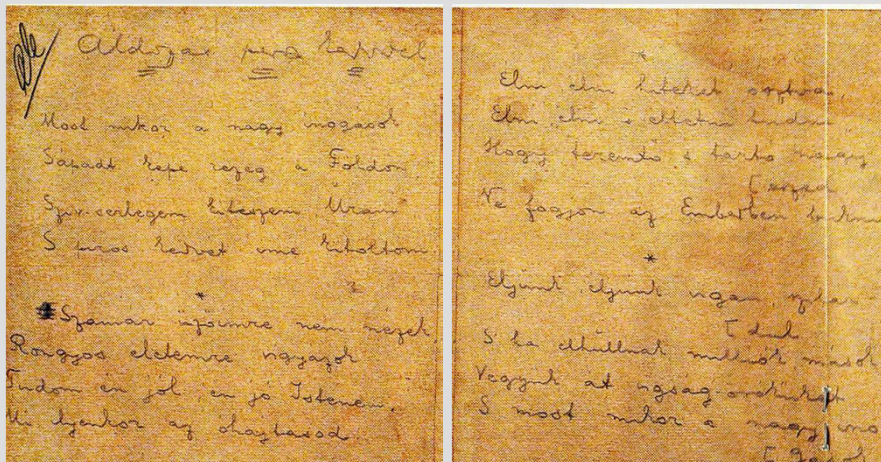 Aldozás
Most mikor a nagy inogások
Sápadt képe rezeg a Földön,
Sziv-serlegem kiteszem Uram
S piros kedvet ime kitöltöm.
*
Szamár üzőimre nem nézek,
Rongyos életemre vigyázok
Tudom én jól, én jó Istenem,
Mi ilyenkor az óhajtásod.
*
Elni, élni hiteket osztva,
Elni, élni s éltetni tudni
Hogy teremtő s tartó nagy
Ne fogjon az Emberben
*
Eljünk, éljünk vigan,
S ha elhullnak milliók mások
Vegyük át
S most mikor a nagy ino
[gások